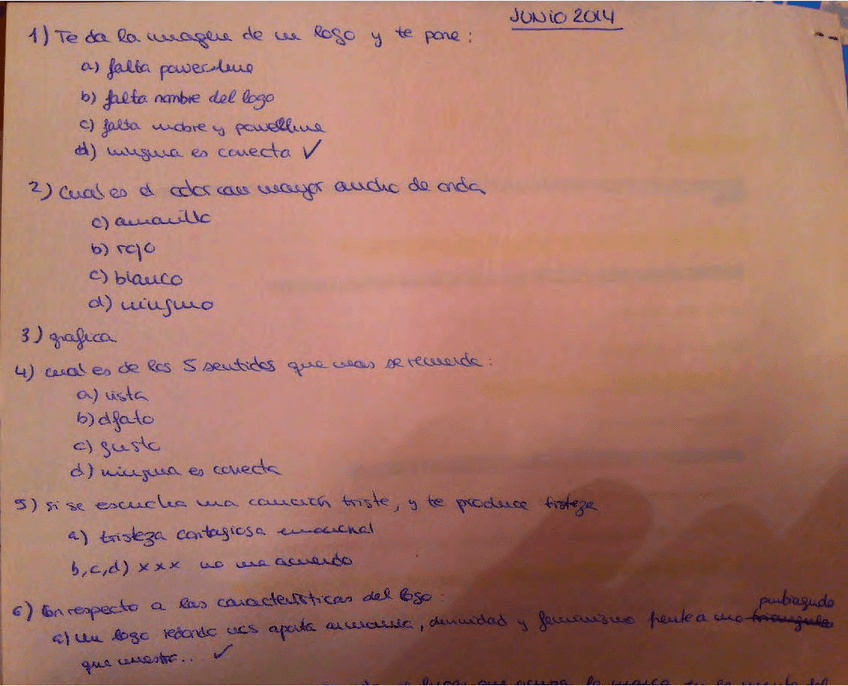 JUNIO 2014
1) Te da la imagen de un logo y te pone:
a) falta powerline
b) falta nombre del logo
c) falta nobre y powerline
d) ninguna es correcta ✓
2) Cual es el color con mayor ancho de onda
c) amarillo
b) rojo
c) blanco
d) ninguno
3) grafica
4) cual es de los 5 sentidos que mas se recuerda:
a) vista
b) olfato
c) gusto
d) ninguna es correcta
5) si se escucha una canción triste, y te produce tristeza
a) tristeza contagiosa emocional
b,c,d) x x x no me acuerdo
6) Con respecto a las características del logo:
puntiagudo
a) un logo redondo nos aporta armonia, y feminismo frente a uno triangular
que muestra... ✓